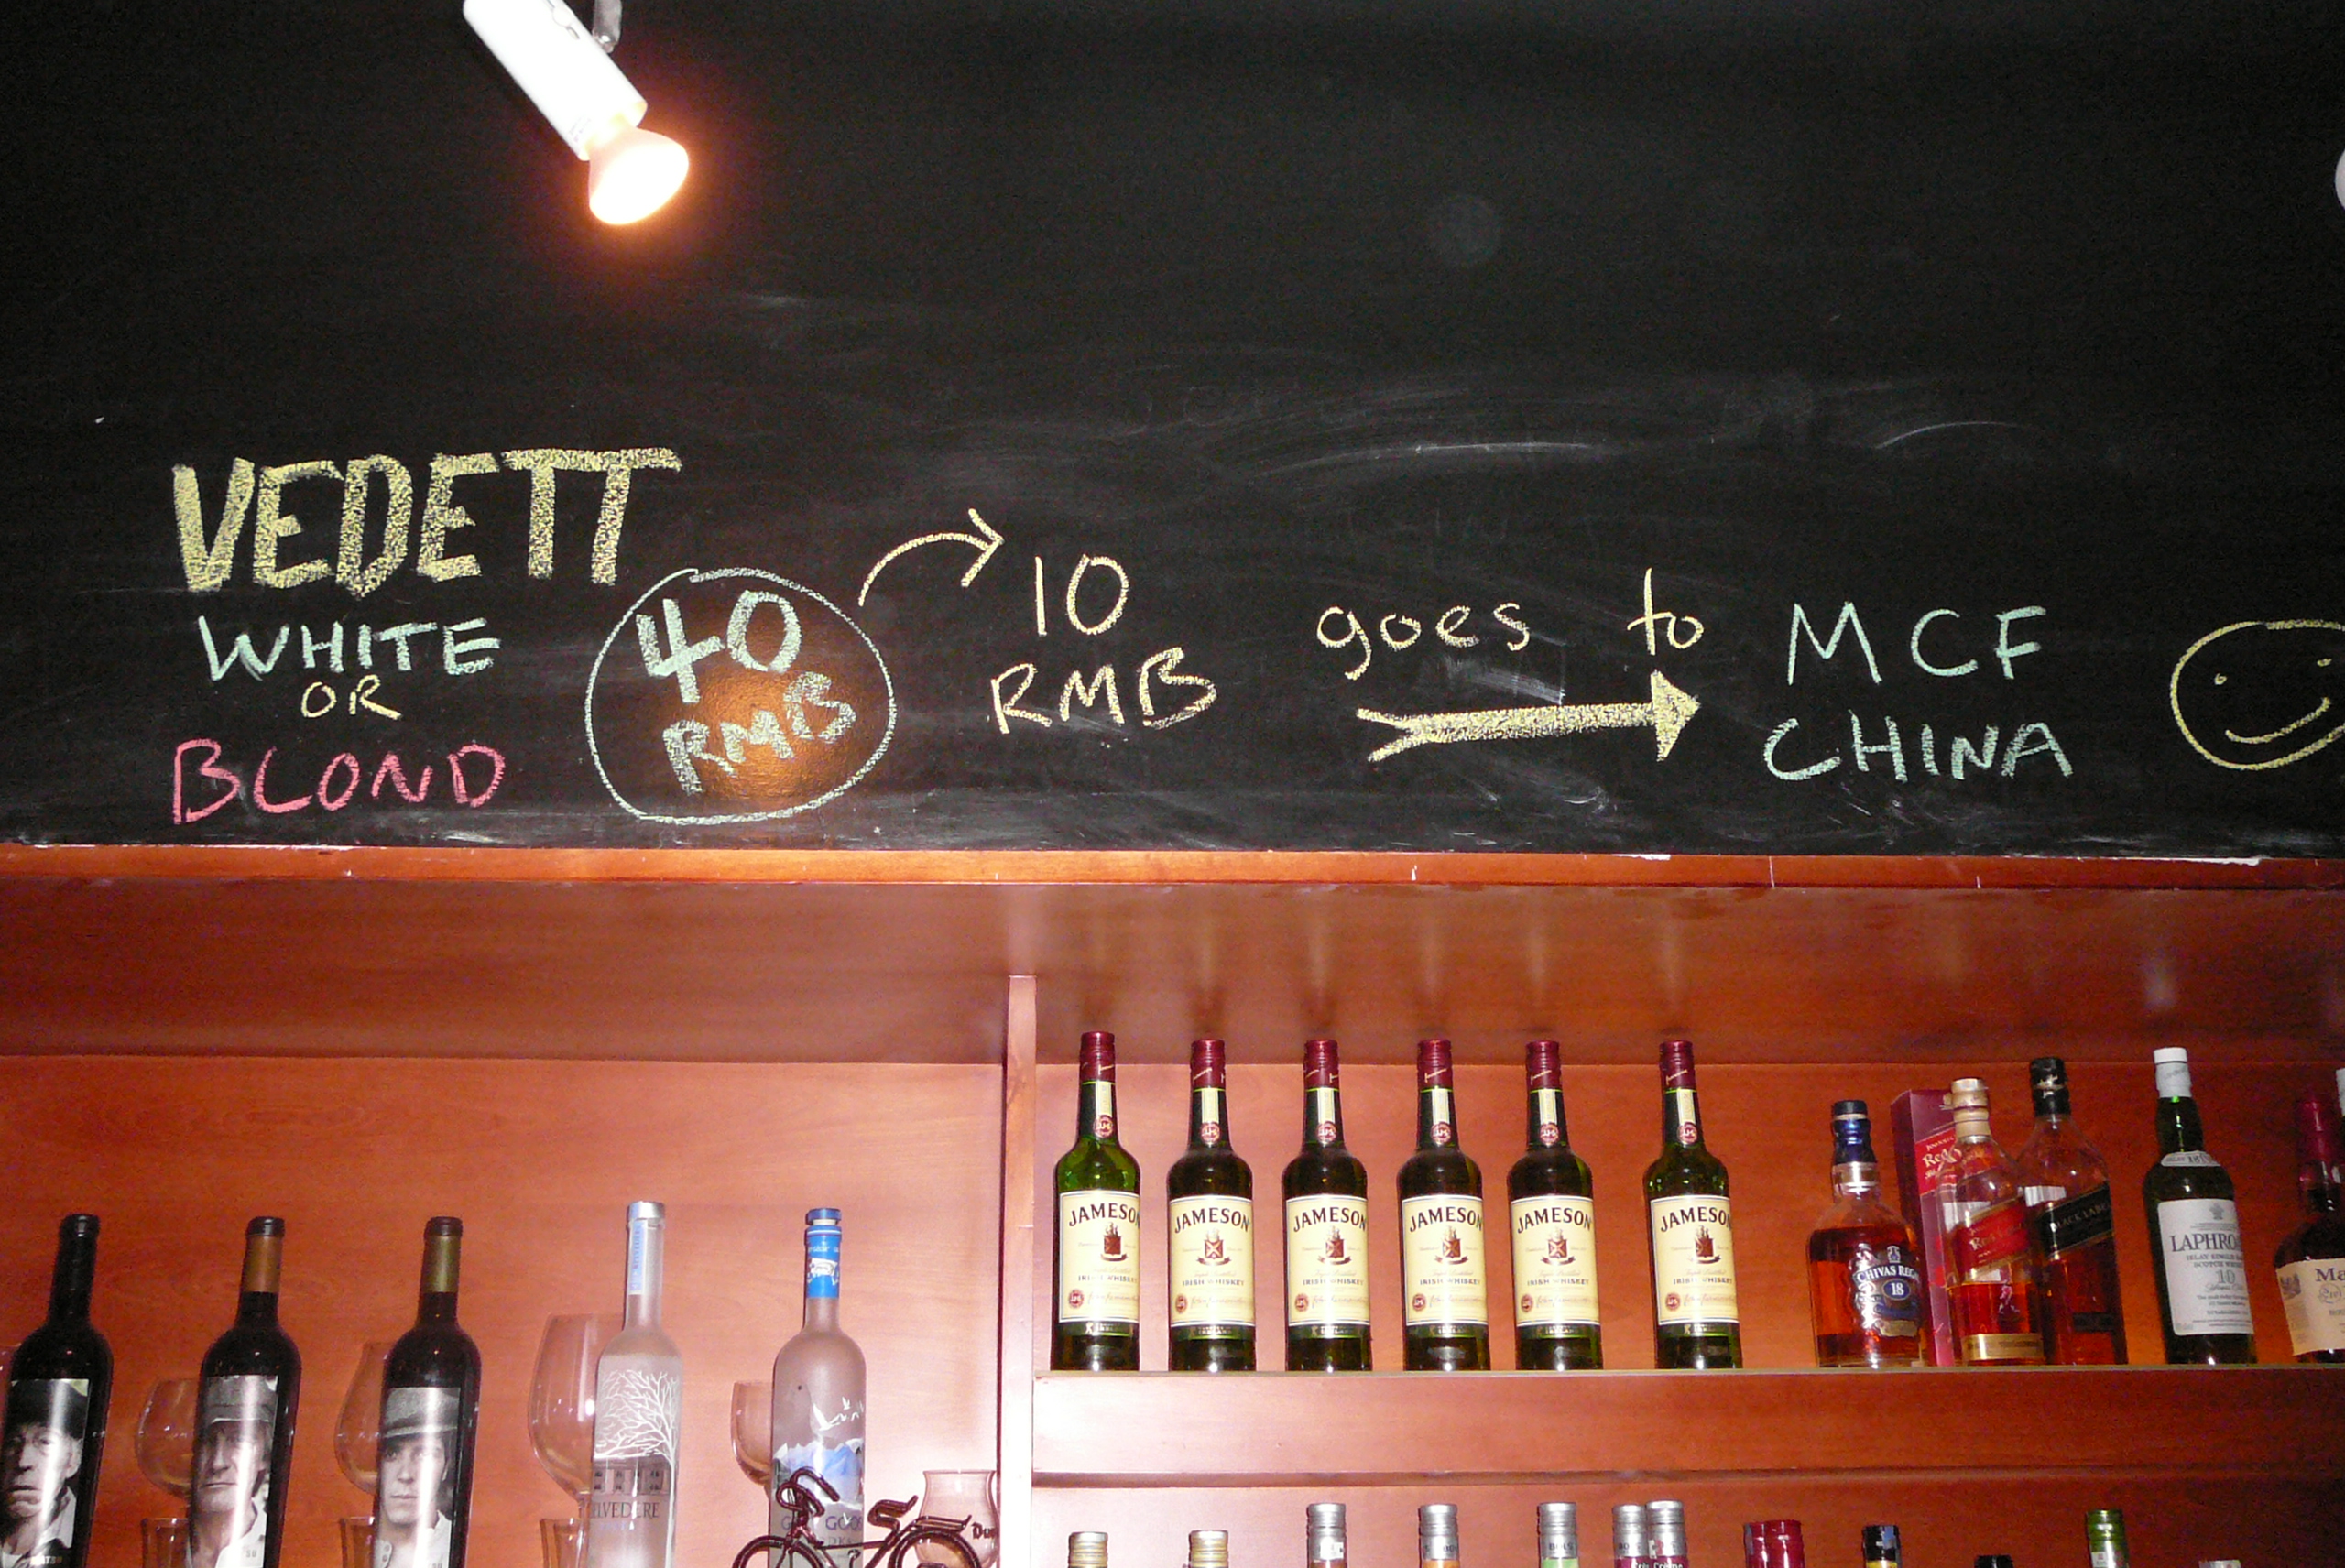 VEDETT
WHITE
OR
BLOND
40
RMB
10
RMB
goes to
MCF
CHINA
JAMESON
IRISH WHISKEY
JAMESON
IRISH WHISKEY
JAMESON
IRISH WHISKEY
JAMESON
IRISH WHISKEY
JAMESON
IRISH WHISKEY
JAMESON
IRISH WHISKEY
CHIVAS REGAL
18
Red
BLACK LABEL
LAPHRO
ISLAY SINGLE MALT
SCOTCH WHISKY
10
Ma
BELVEDERE